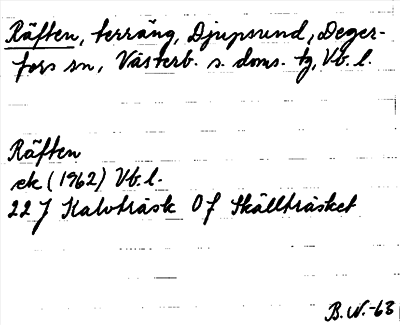 Räften, terräng, Djupsund, Deger-
fors sn, Västerb. s. doms. tg, Vb. l.
Räften
ek (1962) Vb. l.
22 J Kalvträsk 0 f Skällträsket
B.N.-63